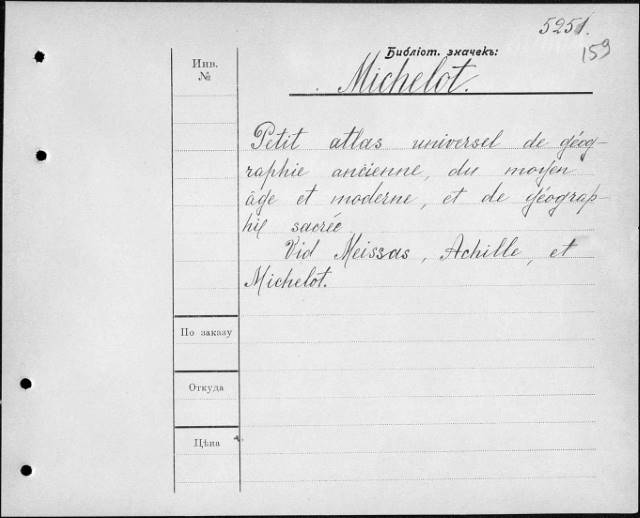 5251.
159
Библіот. значекъ:
Michelot.
Инв.
№
Petit atlas universel de géog-
raphie ancienne, du moyen
âge et moderne, et de géograp-
hie sacrée
Vid Meissas, Achille, et
Michelot.
По заказу
Откуда
Цѣна